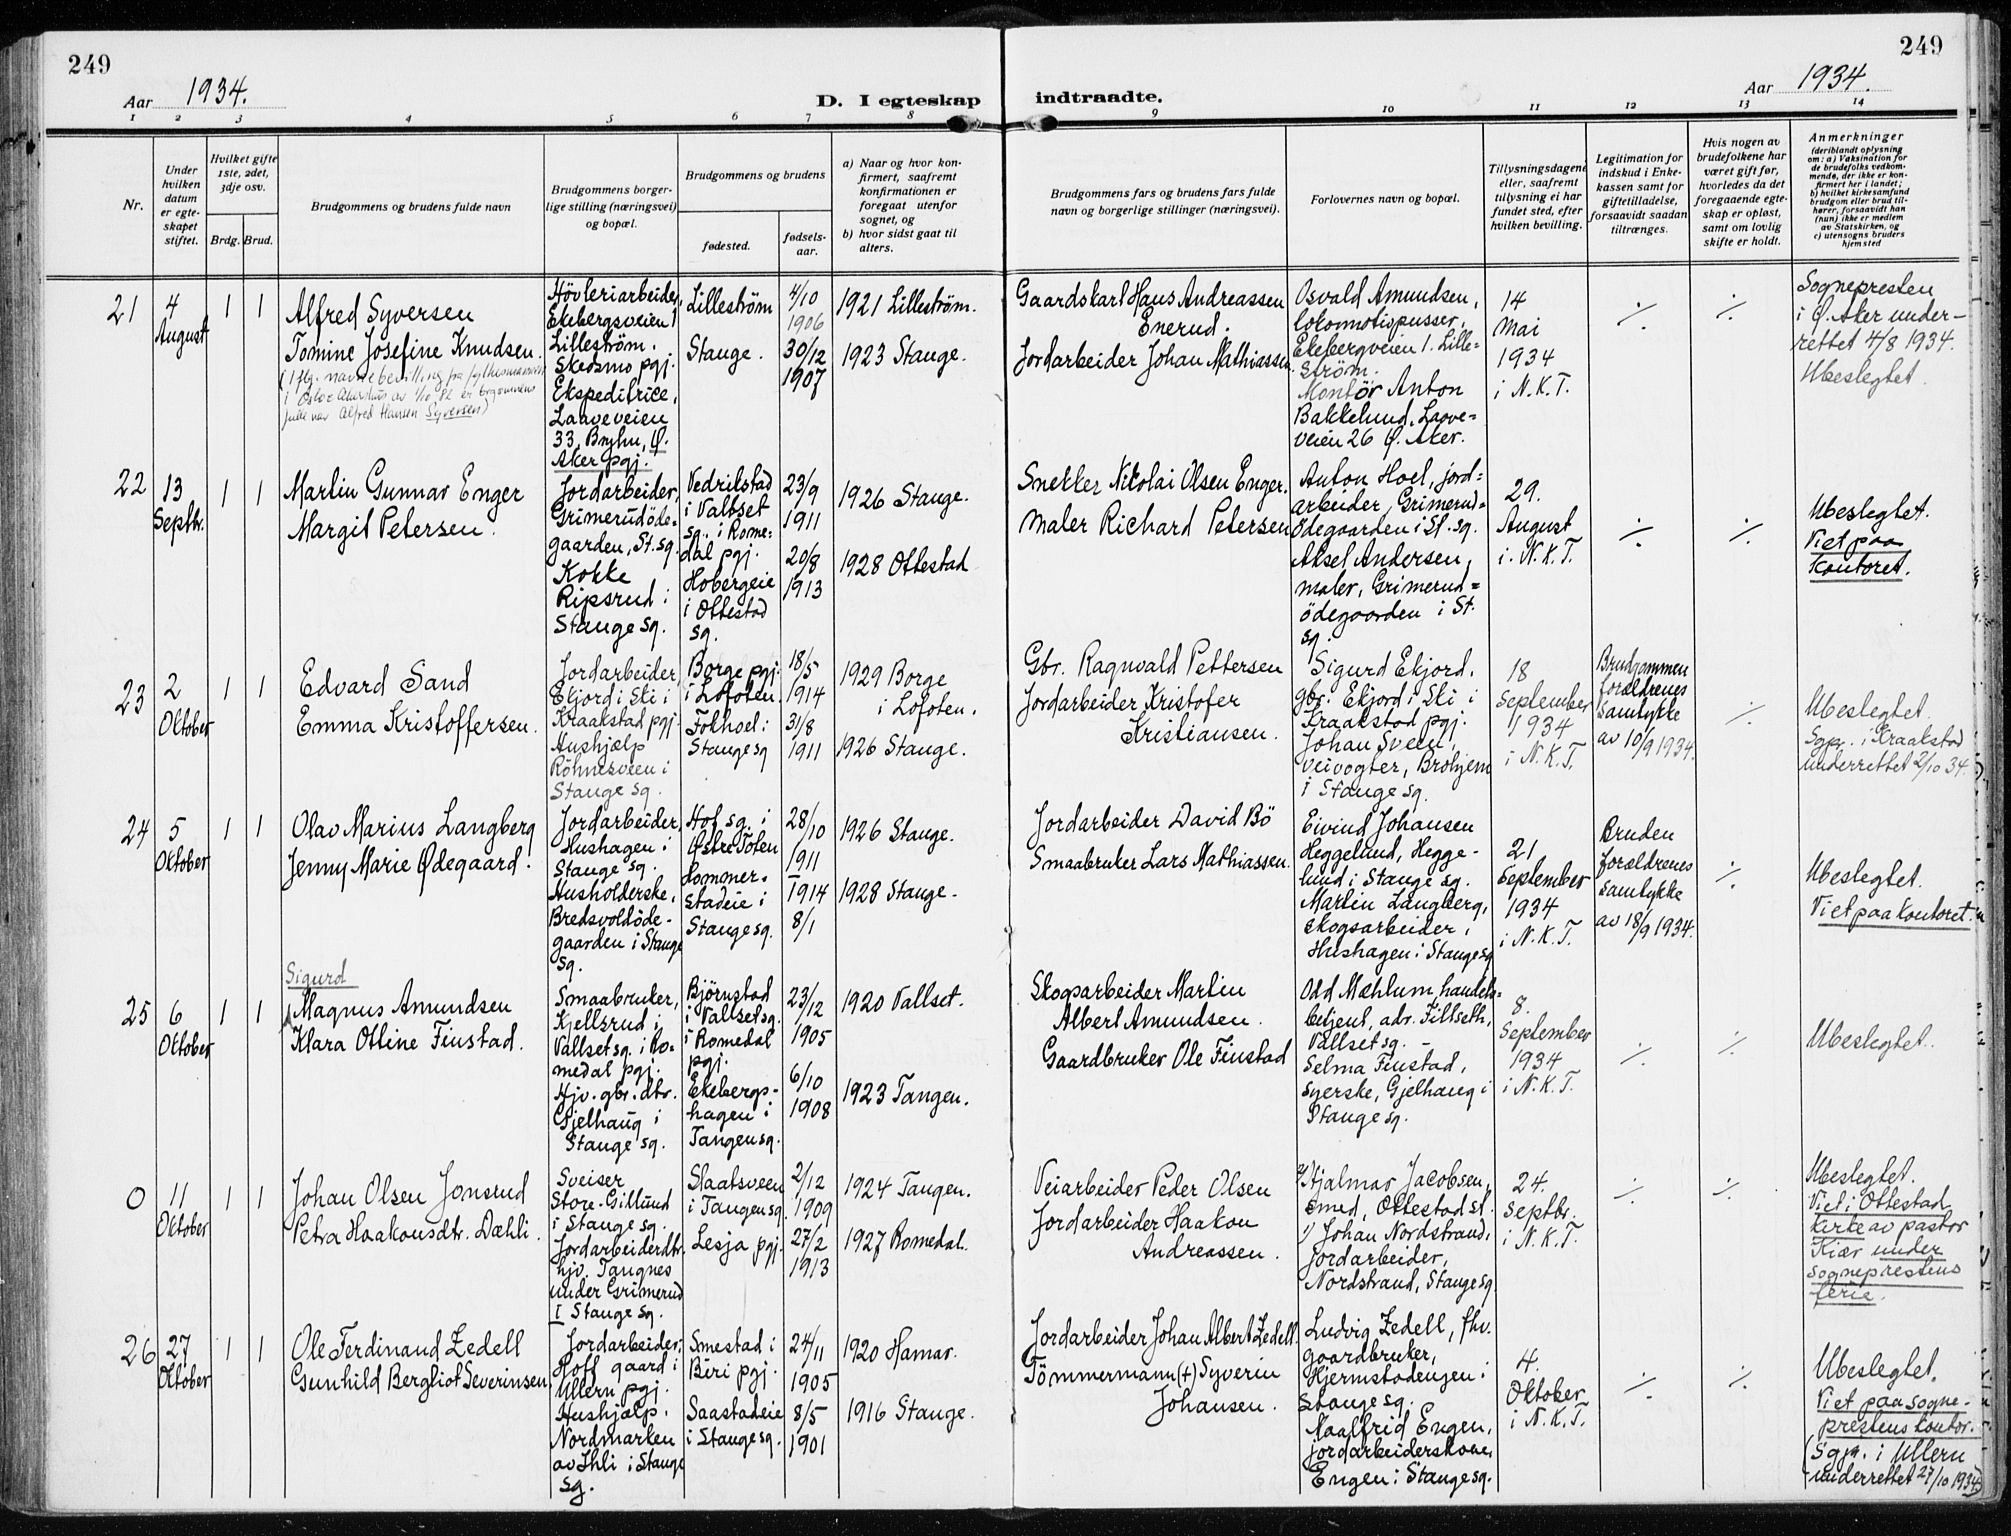 249
Aar 1934.
D. I egteskap
indtraadte.
Aar 1934.
249
1 2 3 4 5 6 7 8 9 10 11 12 13 14
Nr.
Under hvilken datum er egteskapet stiftet.
Hvilket gifte 1ste, 2det, 3dje osv.
Brdg. Brud.
Brudgommens og brudens fulde navn
Brudgommens borgerlige stilling (næringsvei) og bopæl.
Brudgommens og brudens
fødested.
fødselsaar.
a) Naar og hvor konfirmert, saafremt konfirmationen er foregaat utenfor sognet, og
b) hvor sidst gaat til alters.
Brudgommens fars og brudens fars fulde navn og borgerlige stillinger (næringsvei).
Forlovernes navn og bopæl.
Tillysningsdagene eller, saafremt tillysning ei har fundet sted, efter hvilken bevilling.
Legitimation for indskud i Enkekassen samt for giftetilladelse, forsaavidt saadan tiltrænges.
Hvis nogen av brudefolkene har været gift før, hvorledes da det foregaaende egteskap er opløst, samt om lovlig skifte er holdt.
Anmerkninger
(deriblandt oplysning om: a) Vaksination for de brudefolks vedkommende, der ikke er konfirmert her i landet;
b) hvilket kirkesamfund brudgom eller brud tilhører, forsaavidt han (hun) ikke er medlem av Statskirken, og
c) utensogns bruders hjemsted
21
4 August
1 1
Alfred Syversen
Tomine Josefine Knudsen.
Høvleriarbeider,
Ekebergsveien 1
Lilleström.
Skedsmo pgj.
Ekspeditrice,
Laaveveien
33, Bryhn, Ø.
Aker pgj.
Lilleström
Stange.
4/10
1906
30/12
1907
1921 Lilleström.
1923 Stange.
Gaardskarl Hans Andreassen
Enerud.
Jordarbeider Johan Mathiassen.
Osvald Amundsen,
lokomotivpusser,
Ekebergveien 1. Lille=
ström.
Montör Anton
Bakkelund, Laave=
veien 26 Ø. Aker.
14
Mai
1934
i N.K.T.
./.
./.
Sognepresten
i Ø. Aker under-
rettet 4/8 1934.
Ubeslegtet.
22
13 Septbr.
1 1
Martin Gunnar Enger
Margit Petersen.
Jordarbeider,
Grimerudöde=
gaarden, St. sg.
Kokke
Ripsrud i
Stange sg.
Vedrilstad
i Vallset
sg. i Rome=
dal pgj.
Hobergeie
i Ottestad
sg.
23/9
1911
20/8
1913
1926 Stange.
1928 Ottestad
Snekker Nikolai Olsen Enger.
Maler Richard Petersen
Anton Hoel, jord=
arbeider, Grimerud=
ödegaarden i St. sg.
Aksel Andersen,
maler, Grimerud=
ödegaarden i St.
sg.
29.
August
i N.K.T.
./.
./.
Ubeslegtet.
Viet paa
kontoret.
23
2 Oktober
1 1
Edvard Sand
Emma Kristoffersen.
Jordarbeider,
Ekjord i Ski i
Kraakstad pgj.
Hushjælp
Röhnesveen i
Stange sg.
Borge pgj.
i Lofoten.
Fokhol i
Stange sg
18/5
1914
31/8
1911
1929 Borge
i Lofoten.
1926 Stange.
Gbr. Ragnvald Pettersen
Jordarbeider Kristofer
Kristiansen.
Sigurd Ekjord,
gbr. Ekjord i Ski i
Kraakstad pgj.
Johan Sveen,
veivogter, Brohjem
i Stange sg.
18
September
1934
i N.K.T.
Brudgommen
forældrenes
samtykke
av 10/9 1934.
./.
Ubeslegtet.
Sogn. i Kraakstad
underrettet 2/10 34.
24
5 Oktober
1 1
Olav Marius Langberg
Jenny Marie Ødegaard.
Jordarbeider,
Hushagen i
Stange sg.
Husholderske,
Bredsvoldöde-
gaarden i Stange
sg.
Hof sg. i
Østre Toten
Hommer-
stadeie i
Stange sg.
28/10
1911
1914
8/1
1926 Stange.
1928 Stange.
Jordarbeider David Bö
Smaabruker Lars Mathiassen.
Eivind Johansen
Heggelund, Hegge-
lund i Stange sg.
Martin Langberg,
skogsarbeider,
Hushagen i Stange sg
21
September
1934
i N.K.T.
Bruden
forældrenes
samtykke
av 18/9 1934.
./.
Ubeslegtet.
Viet paa kontoret.
25
6 Oktober
1 1
Sigurd
Magnus Amundsen
Klara Otline Finstad.
Smaabruker,
Kjellsrud i
Vallset sg. i Ro-
medal pgj.
Hjv. gbr. dtr.
Gjelhaug i
Stange sg.
Björnstad
i Vallset sg.
i Romedal
pgj.
Ekebergs-
hagen i
Tangen sg.
23/12
1905
6/10
1908
1920 Vallset.
1923 Tangen.
Skogsarbeider Martin
Albert Amundsen.
Gaardbruker Ole Finstad
Odd Mæhlum, handels=
betjent, adr. Filtseth,
Vallset sg. -
Selma Finstad,
syerske, Gjelhaug i
Stange sg.
8.
September
1934
i N.K.T.
./.
./.
Ubeslegtet.
0
11 Oktober
1 1
Johan Olsen Jonsrud
Petra Haakonsdtr. Dæhli.
Sveiser
Store-Gillund
i Stange sg.
Jordarbeiderdtr.
hjv. Tangnes
under Grimerud
I Stange sg.
Slaatsveen
i Tangen sg.
Lesja pgj.
2/12
1909
27/2
1913
1924 Tangen.
1927 Romedal.
Veiarbeider Peder Olsen
Jordarbeider Haakon
Andreassen.
Hjalmar Jacobsen,
smed, Ottestad st.
Johan Nordstrand,
jordarbeider,
Nordstrand, Stange sg
24.
Septbr.
i N.K.T.
./.
./.
Ubeslegtet.
Viet i Ottestad
kirke av pastor
Kiær under
sogneprestens
ferie.
26
27 Oktober
1 1
Ole Ferdinand Zedell
Gunhild Bergliot Severinsen
Jordarbeider,
Hoff gaard i
Ullern pgj.
Hushjælp.
Nordmarken
av Ihli i Stange
sg.
Smestad i
Biri pgj.
Saastadeie
i Stange sg.
24/11
1905
8/5
1901
1920 Hamar.
1916 Stange.
Jordarbeider Johan Albert Zedell.
Tömmermann (+) Syverin
Johansen.
Ludvig Zedell, fhv.
gaardbruker,
Hjermstadengen i
Stange sg.
Naalfrid Engen,
jordarbeiderskone,
Engen i Stange sg.
4.
Oktober
i N.K.T.
./.
./.
Ubeslegtet.
Viet paa sogne-
prestens kontor.
(Sgpr. i Ullern
underrettet 27/10 1934)